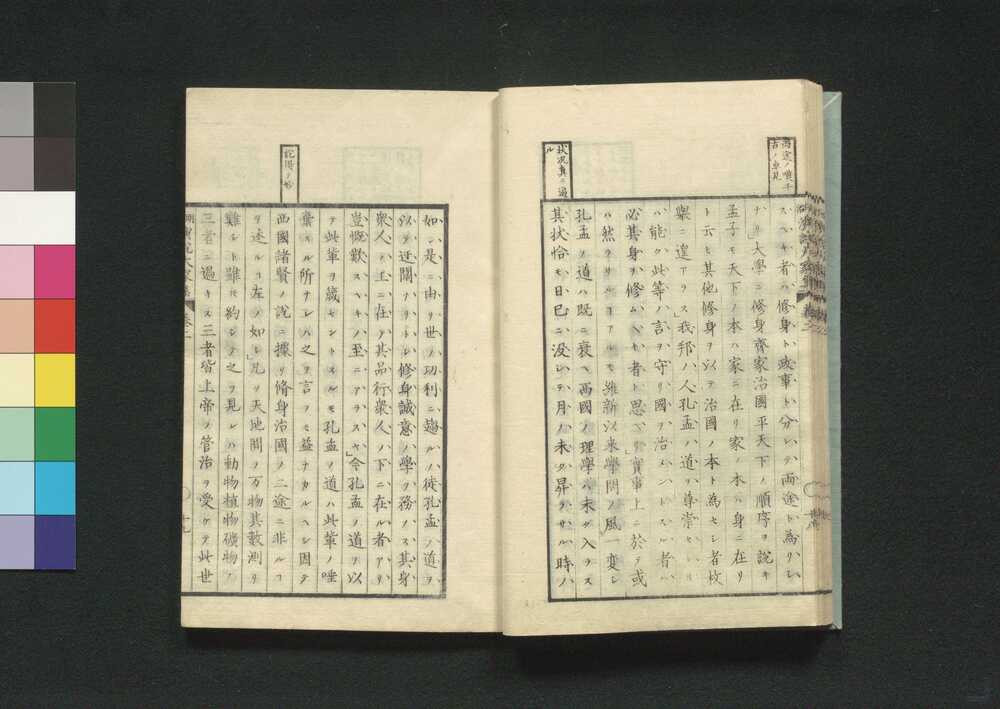 両途ノ喚千
古ノ卓見
スヘキ者ハ修身ト政事ト分レテ両途ト為リシ
ナリ大學ニ修身齊家治國平天下ノ順序ヲ説キ
孟子モ天下ノ本ハ家ニ在リ家ノ本ハ身ニ在リ
ト云ヒ其他修身ヲ以テ治國ノ本ト為セシ者枚
擧ニ遑アラス我邦ノ人孔孟ノ道ヲ尊崇セシ
ハ能ク此等ノ言ヲ守リ國ヲ治メントスル者ハ
必其身ヲ修ムヘキ者ト思ヘ實事上ニ於テ或
ハ然ラサルコアルモ維新以来學問ノ風一變シ
孔孟ノ道ハ既ニ衰ヘ西國ノ理學ハ未タ入ラス
其状恰モ日已ニ没シテ月ノ未タ昇ラサル時ノ
状况真ニ逼
ル
如シ是ニ由リ世ノ功利ニ趨ルノ徒孔孟ノ道ヲ
以テ迂闊ナリトシ修身誠意ノ學ヲ務メス其身
衆人ノ上ニ在テ其品行衆人ノ下ニ在ル者アリ
豈慨歎スヘキノ至ニアラスヤ今孔孟ノ道ヲ以
テ此輩ヲ箴セントスルモ孔孟ノ道ハ此輩ノ唾
棄スル所ナレハ之ヲ言フモ益ナカルヘシ因テ
西國諸賢ノ説ニ據リ脩身治國ノ二途ニ非ルコ
ヲ述ルコ左ノ如シ凡ソ天地間ノ万物其數測リ
難シト雖モ約シテ之ヲ見レハ動物植物礦物ノ
三者ニ過キス三者皆上帝ノ管治ヲ受ケテ此世
十九